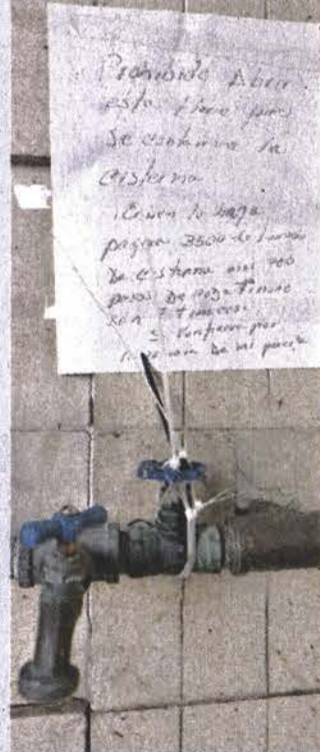 Prohibido Abrir
esta llave pues
se contamina la
cisterna
¡Quien lo haga
pagara 3500 de lavado
de cisterna mas 700
pesos de cada tinaco
son 7 tinacos!